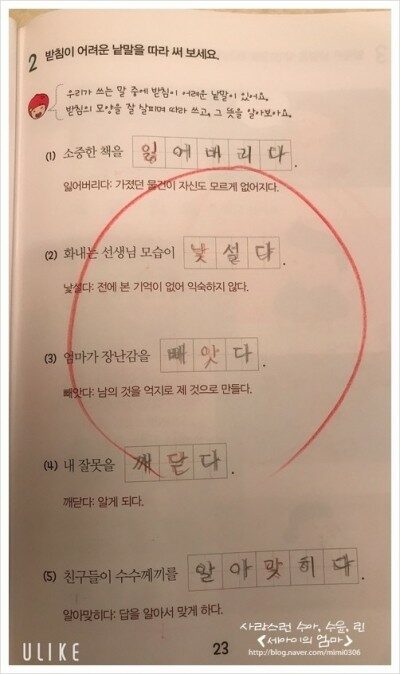 2 받침이 어려운 낱말을 따라 써 보세요.
우리가 쓰는 말 중에 받침이 어려운 낱말이 있어요.
받침의 모양을 잘 살피며 따라 쓰고, 그 뜻을 알아보아요.
(1) 소중한 책을 잃어버리다.
잃어버리다: 가졌던 물건이 자신도 모르게 없어지다.
(2) 화내는 선생님 모습이 낯설다.
낯설다: 전에 본 기억이 없어 익숙하지 않다.
(3) 엄마가 장난감을 빼앗다.
빼앗다: 남의 것을 억지로 제 것으로 만들다.
(4) 내 잘못을 깨닫다.
깨닫다: 알게 되다.
(5) 친구들이 수수께끼를 알아맞히다.
알아맞히다: 답을 알아서 맞게 하다.
사랑스런 수아, 수윤, 린
<세아이의 엄마>
http://blog.naver.com/mimi0306
ULIKE
23